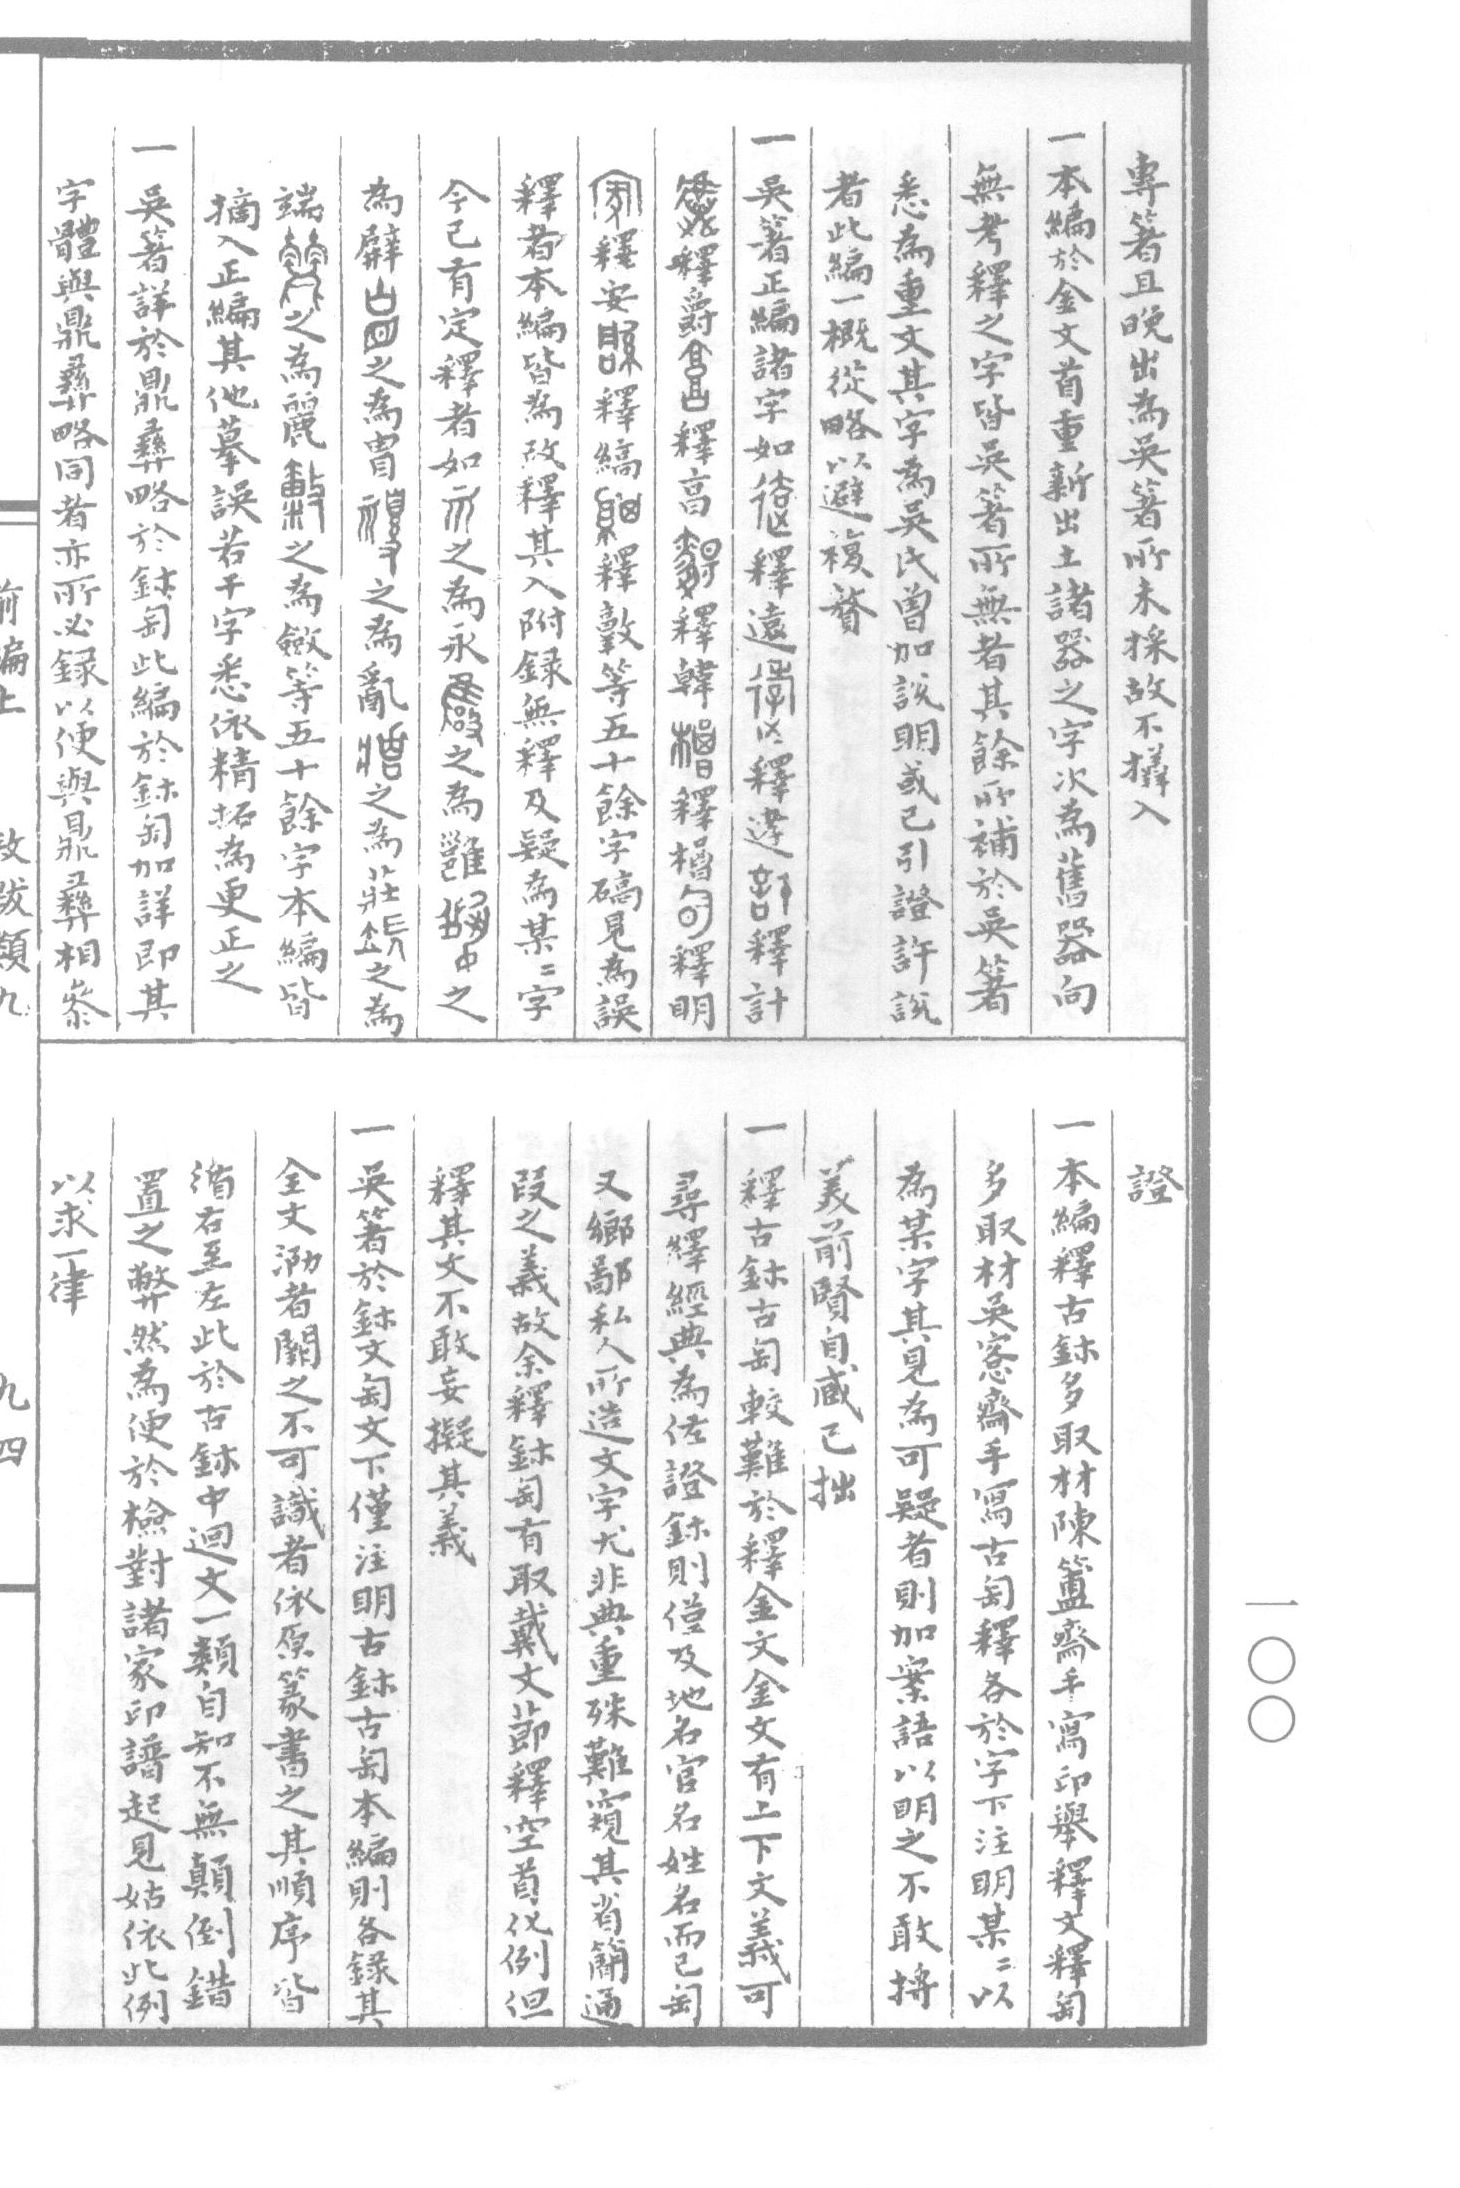 專箸且晚出為吳箸所未採故不攙入
一本編於金文首重新出土諸器之字次為舊器向
無考釋之字皆吳箸所無者其餘所補於吳箸
悉為重文其字為吳氏曾加說明或已引證許說
者此編一概從略以避複贅
一吳箸正編諸字如釋遠釋達釋計
釋爵釋高釋韓釋櫓釋明
釋安釋縞釋斁等五十餘字碻見為誤
釋者本編皆為改釋其入附錄無釋及疑為某〻字
今已有定釋者如之為永之為雝之
為屏之為冑之為亂之為莊之為
端之為麗之為斂等五十餘字本編皆
摘入正編其他摹誤若干字悉依精拓為更正之
一吳箸詳於鼎彝略於鉨匋此編於鉨匋加詳即其
字體與鼎彝略同者亦所必錄以便與鼎彝相參
證
一本編釋古鉨多取材陳簠齋手寫印舉釋文釋匋
多取材吳愙齋手寫古匋釋各於字下注明某〻以
為某字其見為可疑者則加案語以明之不敢掠
美前賢自藏己拙
一釋古鉨古匋較難於釋金文金文有上下文義可
尋繹經典為佐證鉨則僅及地名官名姓名而已匋
又鄉鄙私人所造文字尤非典重殊難窺其省簡通
叚之義故余釋鉨匋有取截文節釋空首化例但
釋其文不敢妄擬其義
一吳箸於鉨文匋文下僅注明古鉨古匋本編則各錄其
全文泐者闕之不可識者依原篆書之其順序皆
循右至左此於古鉨中迴文一類自知不無顛倒錯
置之弊然為便於檢對諸家印譜起見姑依此例
以求一律
前編上
九四
一〇〇